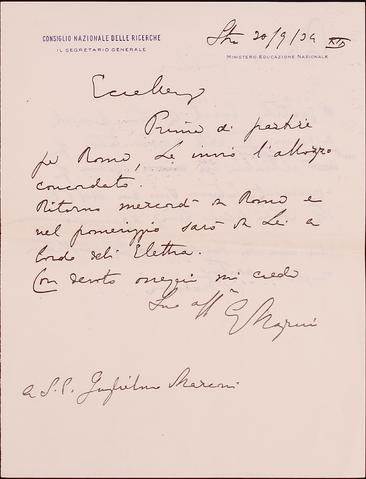 CONSIGLIO NAZIONALE DELLE RICERCHE
IL SEGRETARIO GENERALE
20/9/34 XII
MINISTERO EDUCAZIONE NAZIONALE
Eccellenza
Prima di partire
per Roma, Le invio l'abbozzo
concordato.
Ritorno mercoldì da Roma e
nel pomeriggio sarò da Lei a
bordo dell'Elettra.
Con devoto ossequio mi credo
Suo aff
G Magrini
a S. E. Guglielmo Marconi